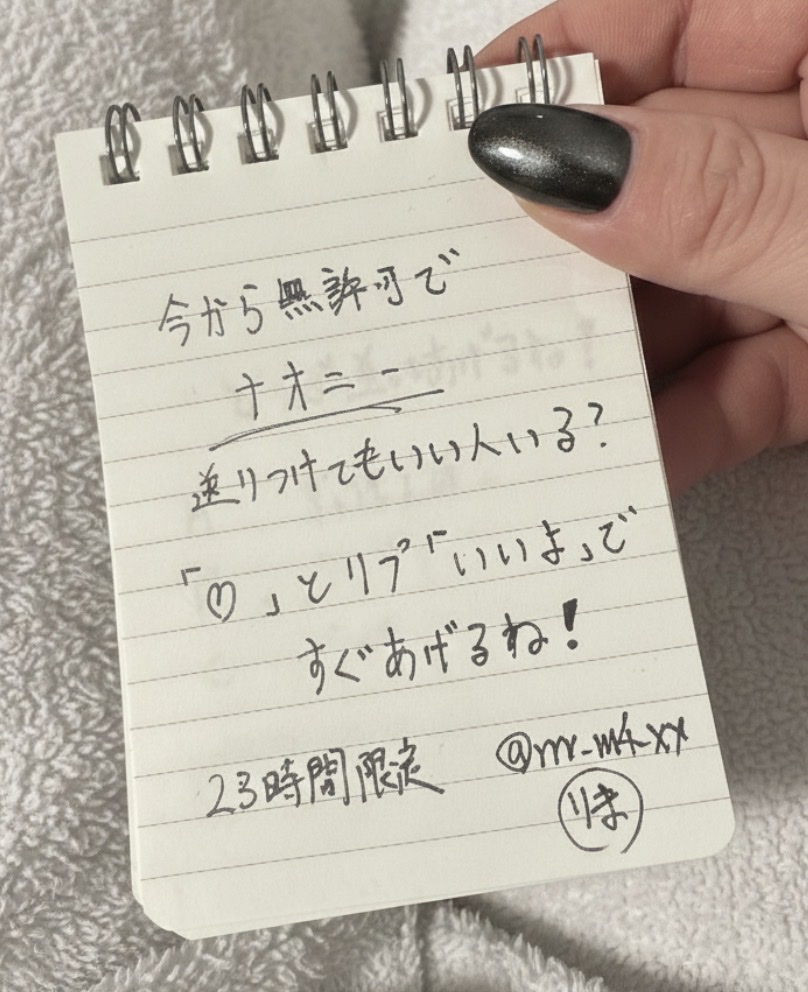 今から無許可で
ナオニー
送りつけてもいい人いる?
「♡」とリプ「いいよ」で
すぐあげるね!
23時間限定
@rrr_m4_xx
りま